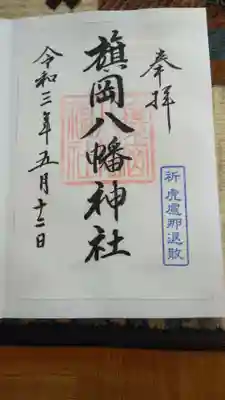 奉拝
祈 虎盧那退散
旗岡八幡神社
令和三年五月十二日